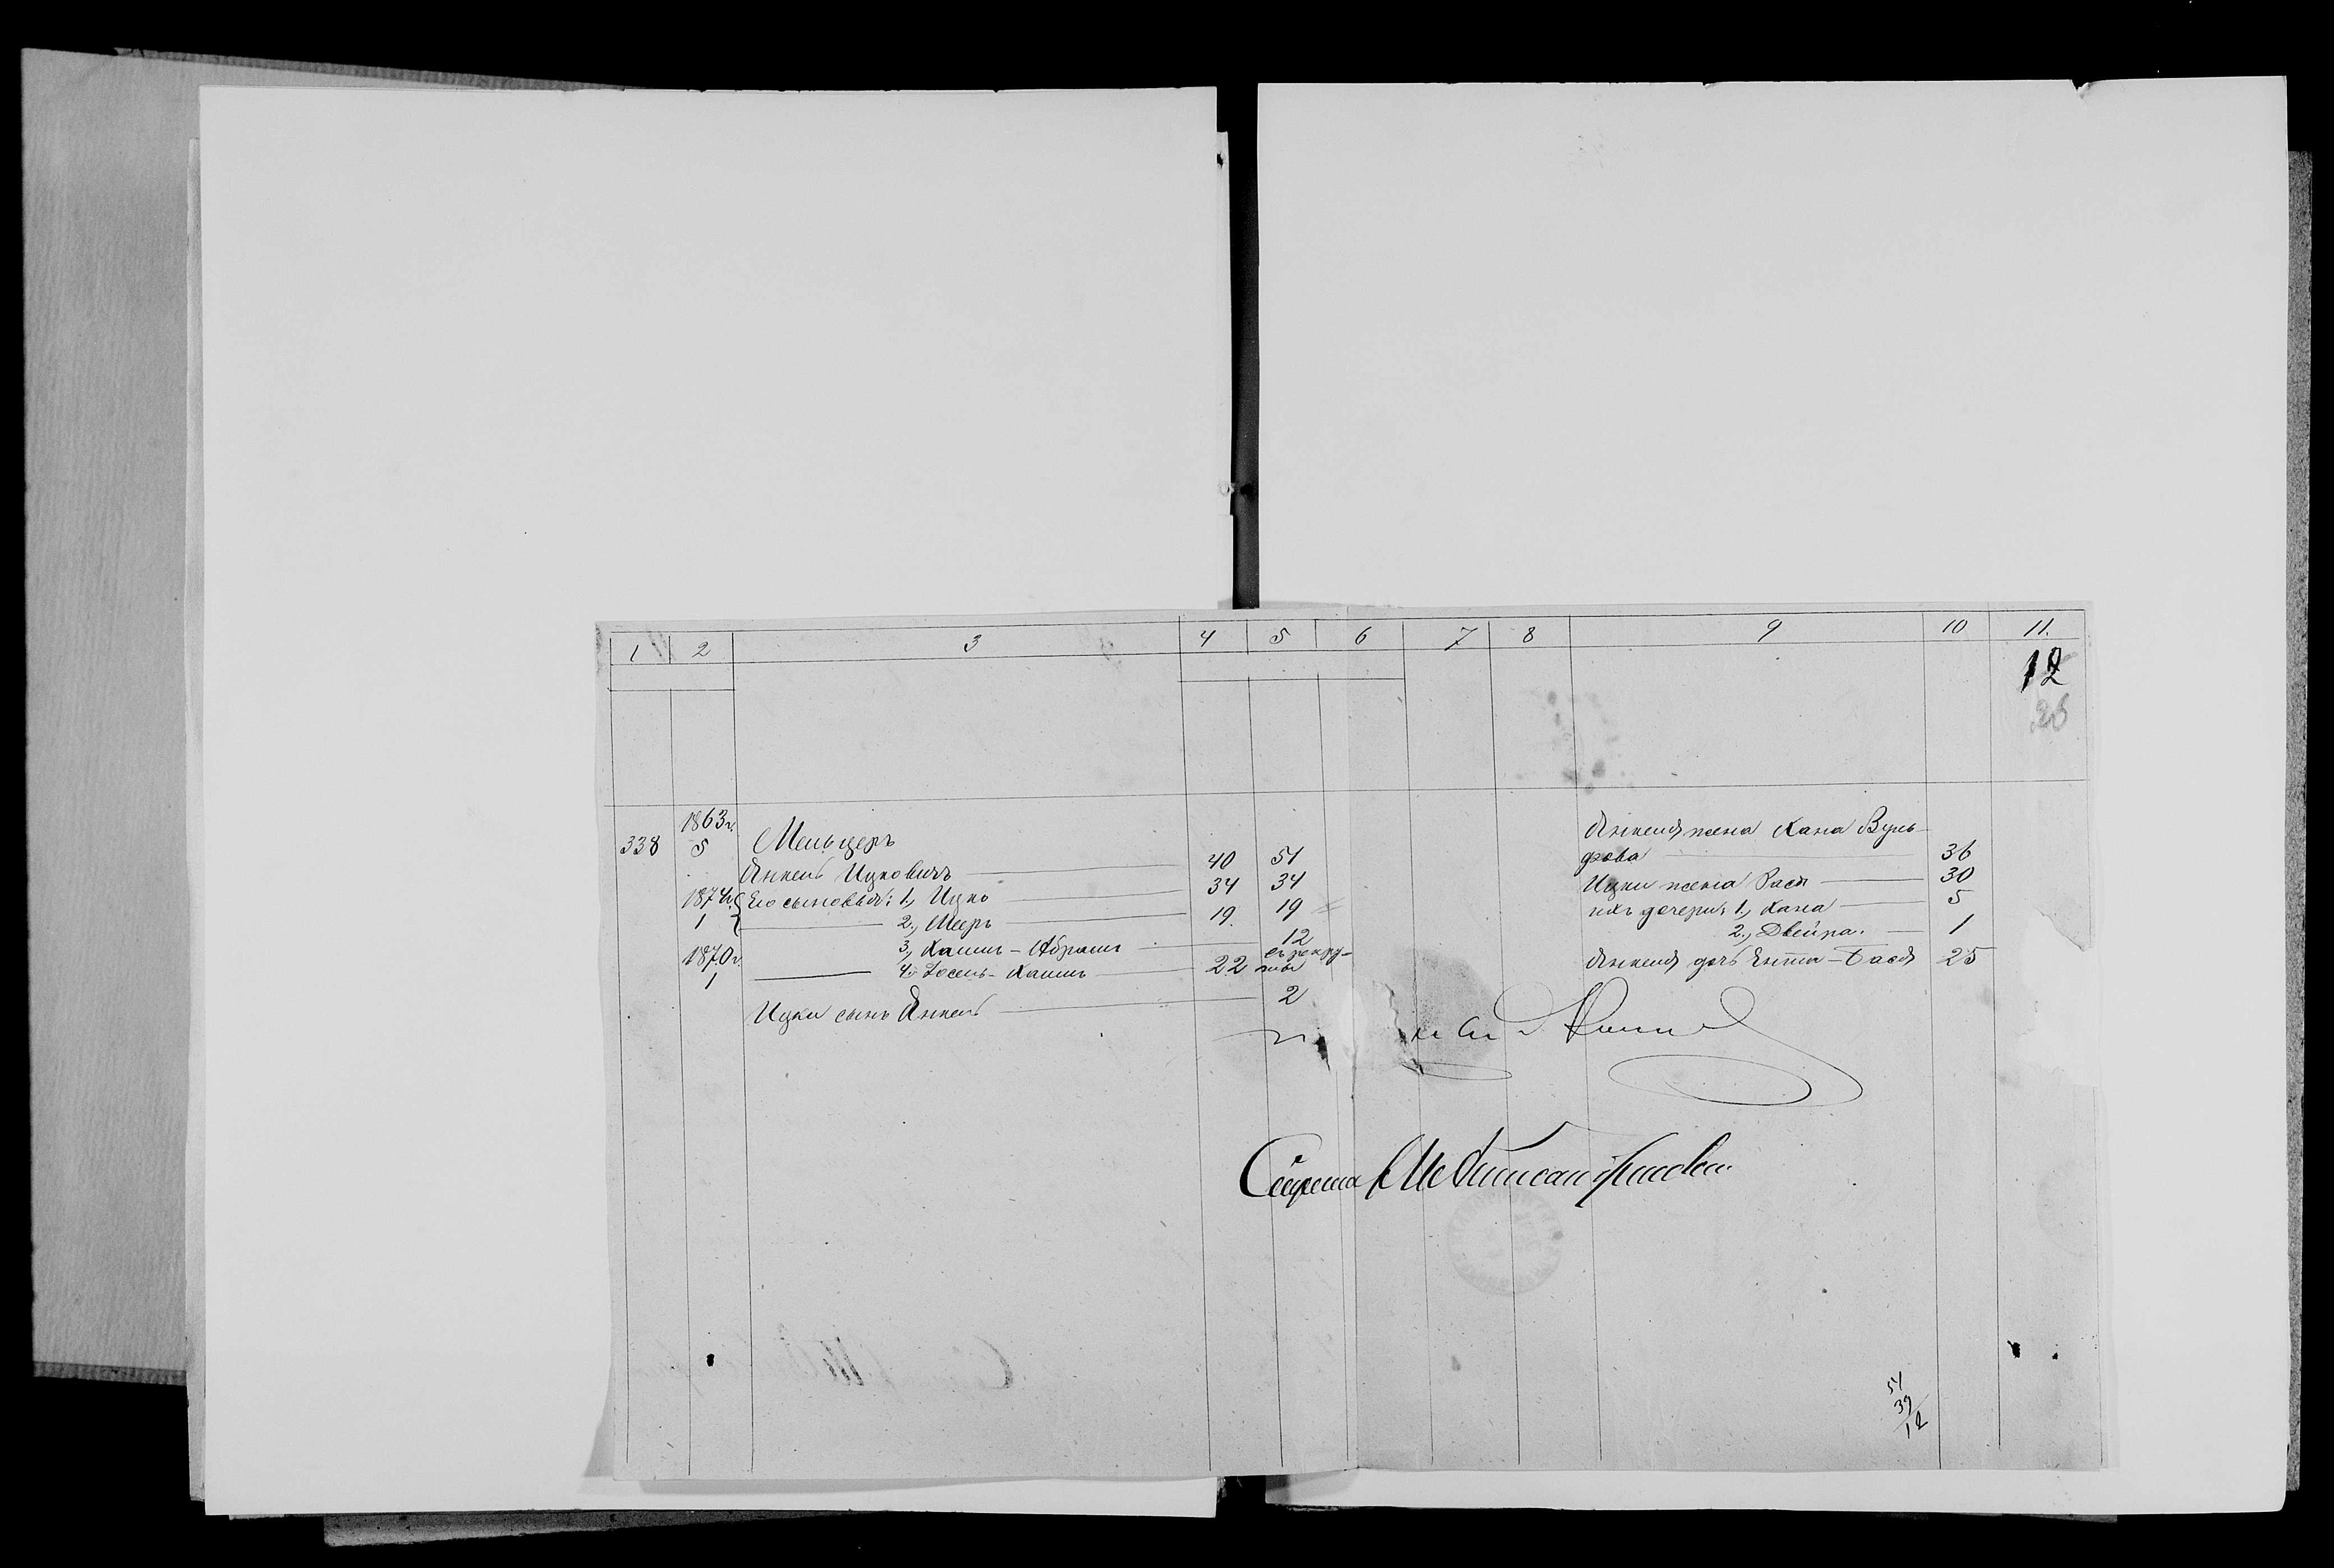 1 2 3 4 5 6 7 8 9 10 11.
12
1863г.
338 5 Мельцеръ
Янкель Ицковичъ 40 51
1874г. Его сыновья: 1, Ицко 34 34
1 2, Мееръ 19. 19
3, Хаимъ-Абрамъ 12
1870г. 4, Іосель-Хаимъ 22 въ рекру-
1 ты
Ицки сынъ Янкель 2
Янкеля жена Хана Вуль-
фова 36
Ицки жена Рася 30
ихъ дочери: 1, Хана 5
2, Двейра. 1
Янкеля дочь Ента-Бася 25
51
39
12